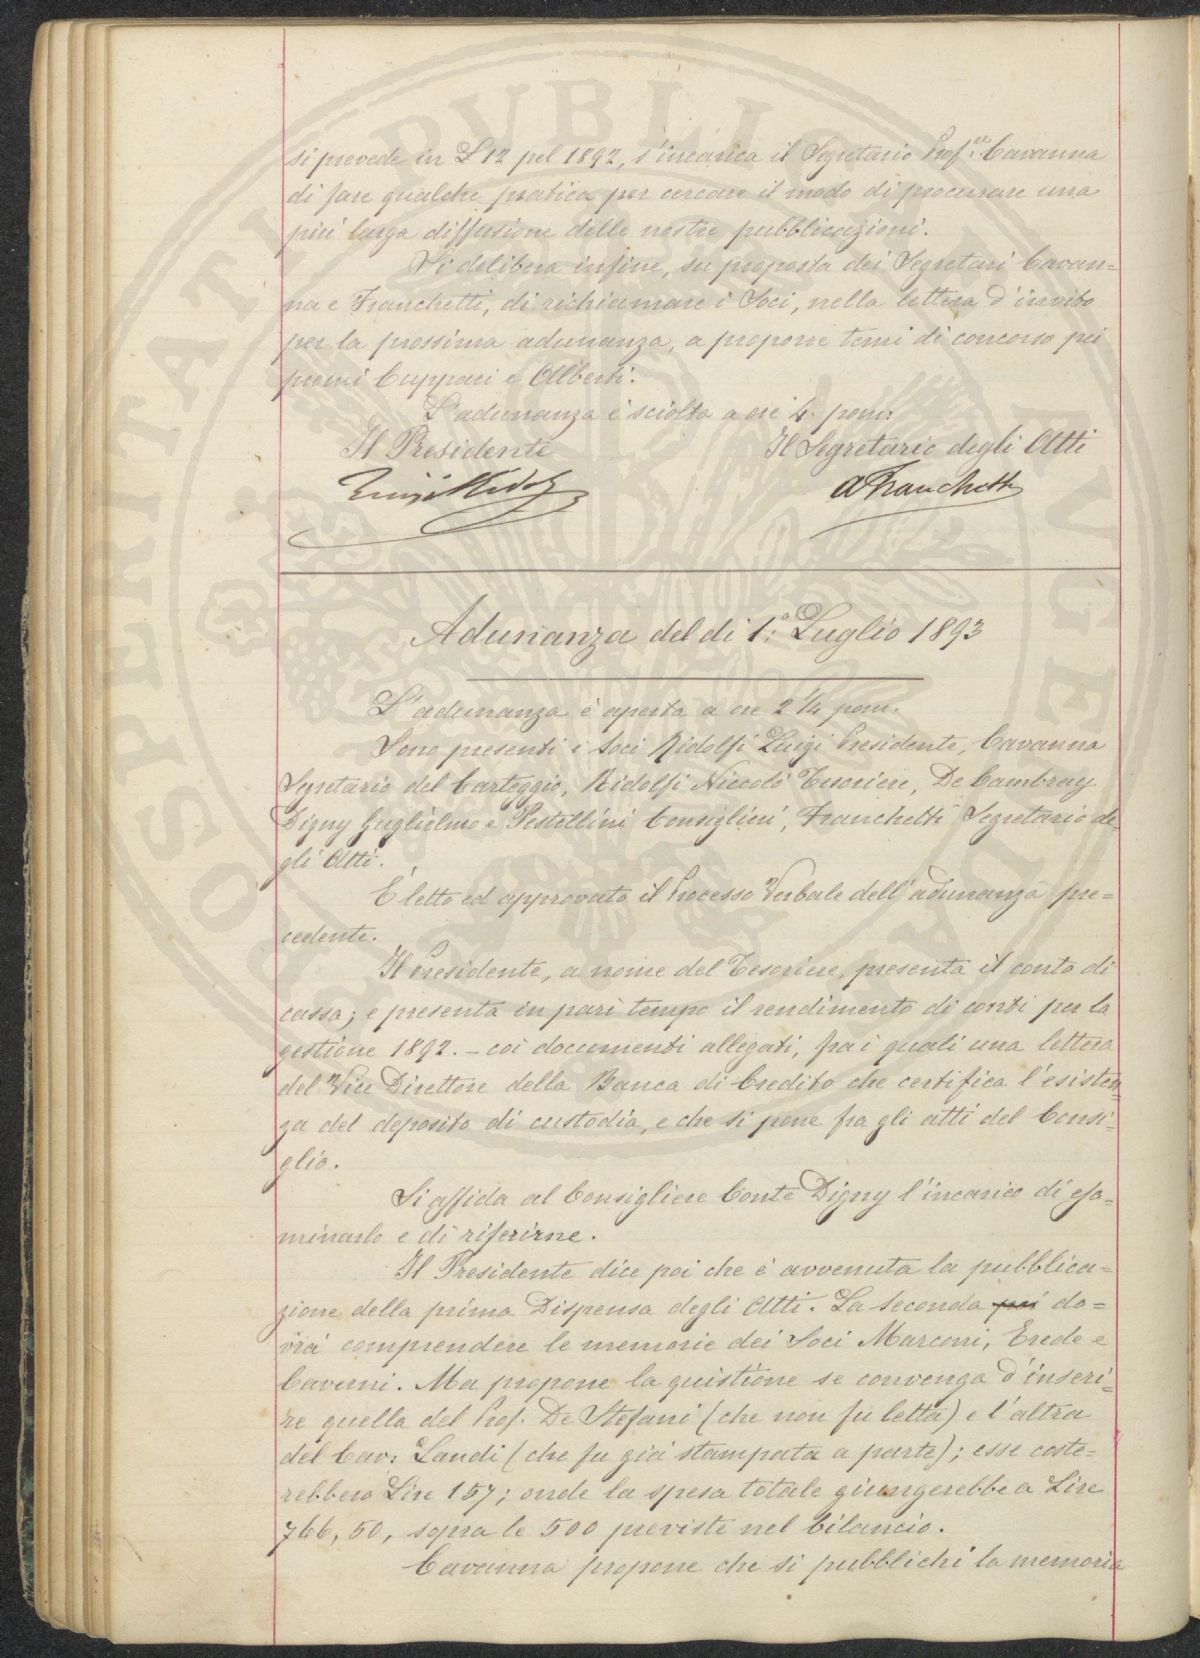 si prevede in L 12 pel 1892, s'incarica il Segretario Prof.re Cavanna
di fare qualche pratica per cercare il modo di procurare una
più larga diffusione delle nostre pubblicazioni.
Si delibera infine, su proposta dei Segretari Cavan=
na e Franchetti, di richiamare i Soci, nella lettera d'invito
per la prossima adunanza, a proporre temi di concorso pei
premi Cuppari e Alberti.
L'adunanza è sciolta a ore 4. pom:
Il Presidente Il Segretario degli Atti
Luigi Ridolfi A Franchetti
Adunanza del dì 1.° Luglio 1893
L'adunanza è aperta a ore 2 1/4 pom.
Sono presenti i Soci Ridolfi Luigi Presidente, Cavanna
Segretario del Carteggio, Ridolfi Niccolò Tesoriere, De Cambray
Digny Guglielmo e Pestellini Consiglieri, Franchetti Segretario de
gli Atti.
È letto ed approvato il Processo Verbale dell'adunanza pre=
cedente.
Il Presidente, a nome del Tesoriere, presenta il conto di
cassa; e presenta in pari tempo il rendimento di conti per la
gestione 1892. – coi documenti allegati, fra i quali una lettera
del Vice Direttore della Banca di Credito che certifica l'esisten
za del deposito di custodia, e che si pone fra gli atti del Consi=
glio.
Si affida al Consigliere Conte Digny l'incarico di esa=
minarlo e di riferirne.
Il Presidente dice poi che è avvenuta la pubblica=
zione della prima Dispensa degli Atti. La seconda poi do=
vrà comprendere le memorie dei Soci Marconi, Erede e
Caverni. Ma propone la quistione se convenga d'inseri=
re quella del Prof. De Stefani (che non fu letta) e l'altra
del Cav: Landi (che fu già stampata a parte); esse coste=
rebbero Lire 157; onde la spesa totale giungerebbe a Lire
766, 50, sopra le 500 previste nel bilancio.
Cavanna propone che si pubblichi la memoria